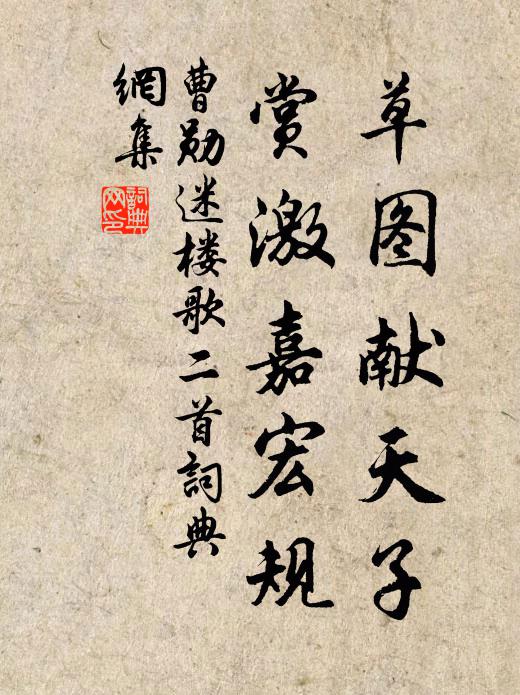 草图献天子
赏激嘉宏规
曹勋迷楼歌二首詞典
網集
詞典網印